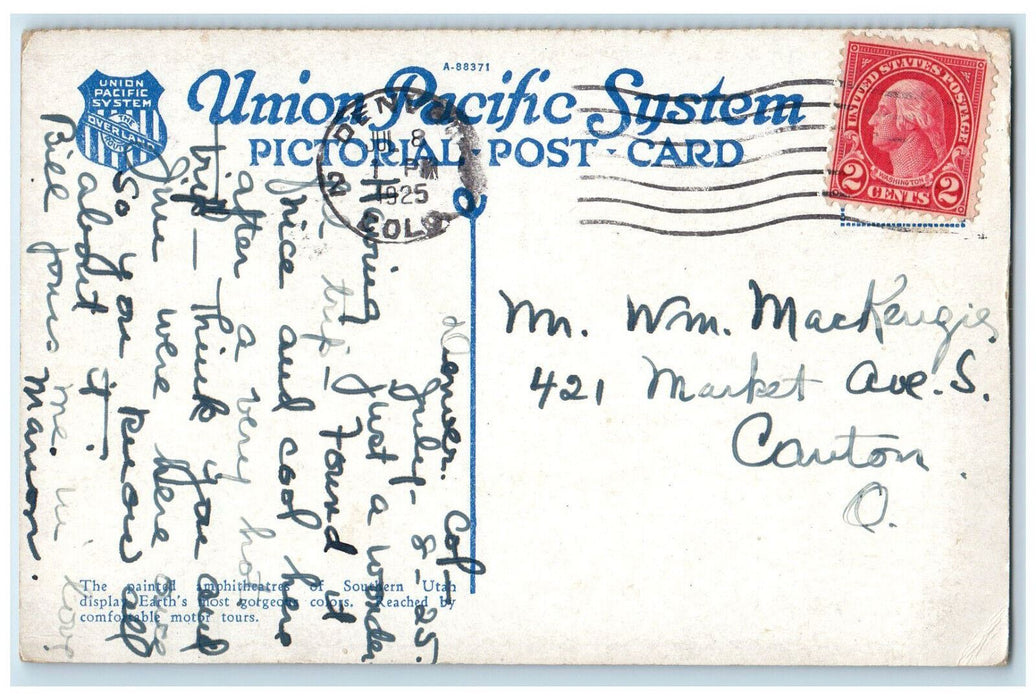 A-88371
UNION
PACIFIC
SYSTEM
THE
OVERLAND
Union Pacific System
PICTORIAL POST-CARD
DENVER
JUL 8
PM
1925
COLO
2
UNITED STATES POSTAGE
WASHINGTON
2 CENTS 2
Mr. Wm. MacKenzie
421 Market Ave. S.
Canton
O.
Denver. Col-
July- 8-25.
Just a wonder
trip- Found it
nice and cool here
after a very hot
trip - Think you and
June were here once
So you know all
about it.
me. in love
Marion.
The painted amphitheatres of Southern Utah
display Earth's most gorgeous colors. Reached by
comfortable motor tours.